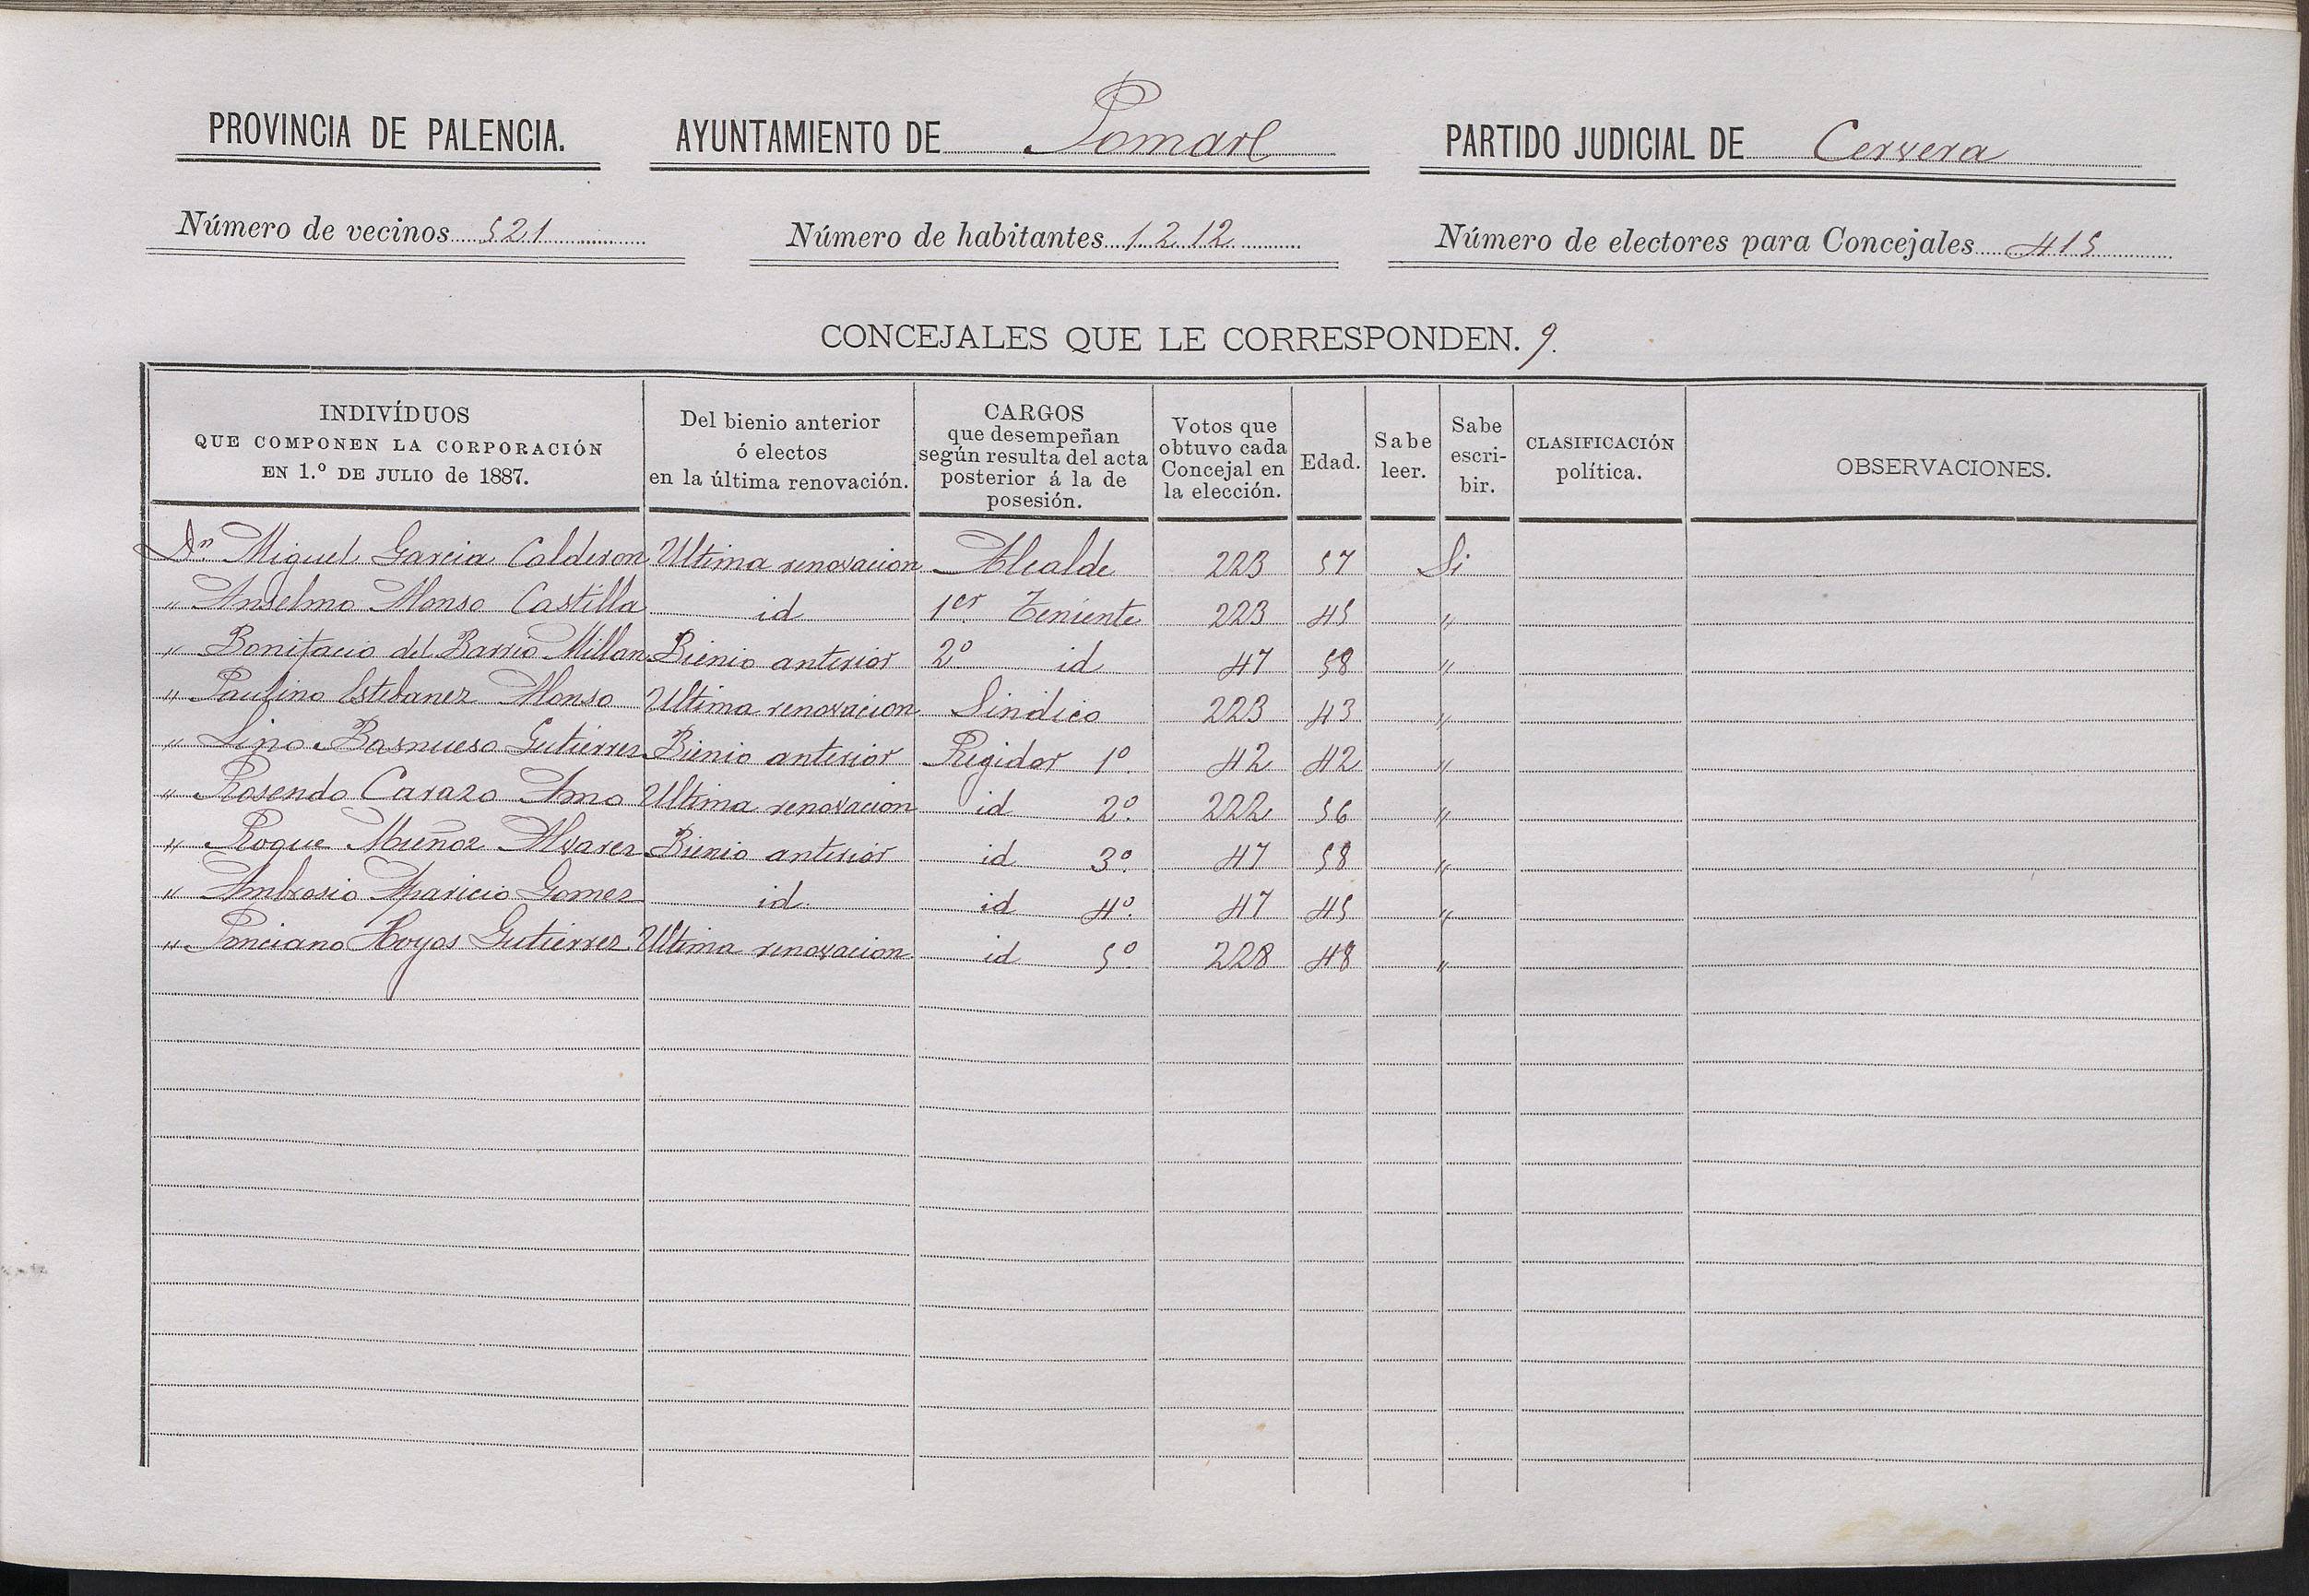 PROVINCIA DE PALENCIA. AYUNTAMIENTO DE Pomar PARTIDO JUDICIAL DE Cervera
Número de vecinos 521 Número de habitantes 1212 Número de electores para Concejales 415
CONCEJALES QUE LE CORRESPONDEN. 9.
INDIVÍDUOS
QUE COMPONEN LA CORPORACIÓN
EN 1.º DE JULIO de 1887.
Del bienio anterior
ó electos
en la última renovación.
CARGOS
que desempeñan
según resulta del acta
posterior á la de
posesión.
Votos que
obtuvo cada
Concejal en
la elección.
Edad.
Sabe
leer.
Sabe
escri-
bir.
CLASIFICACIÓN
política.
OBSERVACIONES.
Dn Miguel Garcia Calderon Ultima renovacion Alcalde 223 57 Si
" Anselmo Alonso Castilla id 1er Teniente 223 45 "
" Bonifacio del Barrio Millan Bienio anterior 2º id 47 58 "
" Paulino Estebanez Alonso Ultima renovacion Sindico 223 43 "
" Lino Gutierrez Bienio anterior Regidor 1º 42 42 "
" Rosendo Carazo Amo Ultima renovacion id 2º. 222 56 "
" Roque Muñoz Alvarez Bienio anterior id 3º. 47 58 "
" Ambrosio Aparicio Gomez id id 4º. 47 45 "
" Ponciano Hoyos Gutierrez Ultima renovacion id 5º. 228 48 "